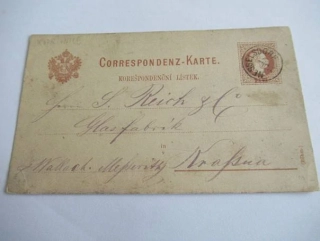 CORRESPONDENZ-KARTE.
KORESPONDENČNÍ LÍSTEK.
Herrn S. Reich & Co
Glasfabrik
in
Wallach. Meseritz Krassna